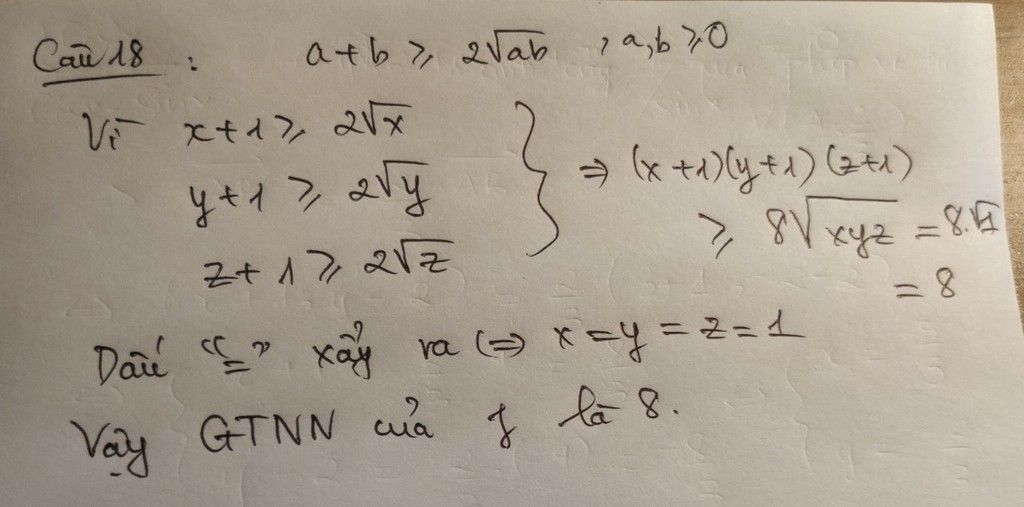 Câu 18 : a + b ⩾ 2√ab , a,b ⩾ 0
Vì x + 1 ⩾ 2√x
y + 1 ⩾ 2√y
z + 1 ⩾ 2√z
⇒ (x + 1)(y + 1)(z + 1)
⩾ 8√xyz = 8.√1
= 8
Dấu "=" xảy ra ⇔ x = y = z = 1
Vậy GTNN của f là 8.